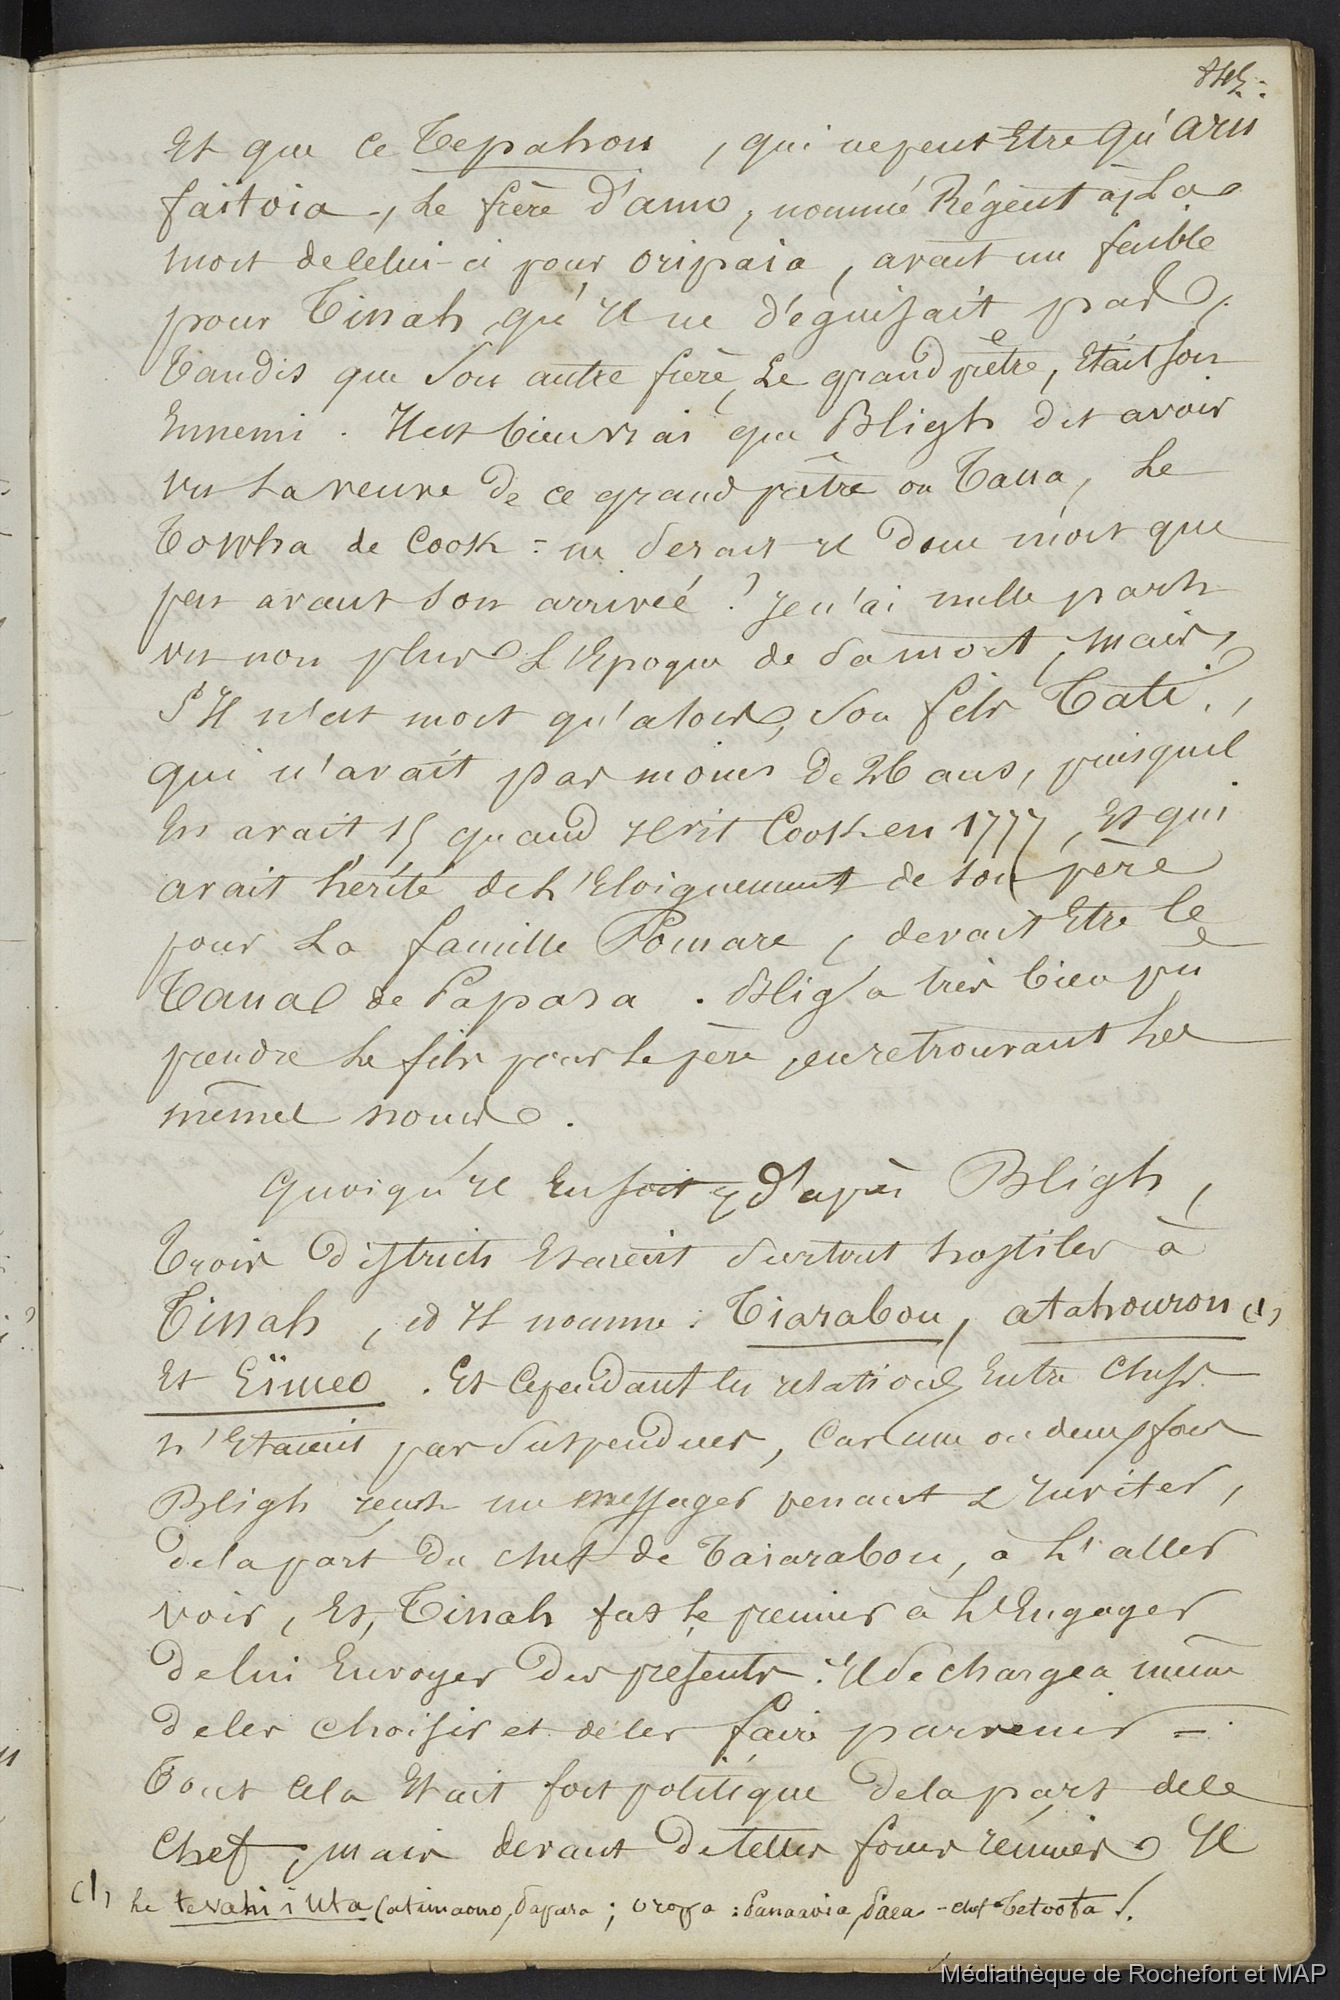 Et que ce Tepahou, qui ne peut Etre qu'aru
faitoia, le frère d'amo, nommé Régent à la
mort de celui-ci pour oripaia, avait un faible
pour Tinah qu'il ne déguisait pas,
tandis que son autre frère, Le grand prêtre, Etait son
Ennemi. Il est bien vrai que Bligh dit avoir
vu la veuve de ce grand prêtre ou Taua, le
Towha de Cook = ne serait il donc mort que
peu avant son arrivée? Je n'ai nulle part
vu non plus L'Epoque de sa mort, mais,
s'Il n'est mort qu'alors, son fils Tati,
qui n'avait pas moins de 26 ans, puisquil
En avait 15 quand il vit Cook en 1777, Et qui
avait hérité de l'Eloignement de son père
pour La famille Pomare, devait Etre le
Taua de Papara. Bligh a très bien pu
prendre le fils pour le père, en retrouvant les
mêmes noms.
Quoiqu'il En soit, d'après Bligh,
Trois districts Etaient surtout hostiles à
Tinah, et Il nomme: Tiarabou, atahourou (1)
Et Eïmeo. Et Cependant les relations Entre Chefs
n'Etaient pas suspendues, Car une ou deux fois
Bligh reçut un messager venant L'inviter,
de la part du chef de Taiarabou, à l'aller
voir, Et, Tinah fut le premier à l'Engager
de lui Envoyer des présents. Il se chargea même
de les choisir et de les faire parvenir =
Tout Cela Etait fort politique de la part de ce
Chef, mais devant de telles forces réunies, Il
(1) Le tevahi i uta (atimaono, papara; oropa: punaavia, paea - chef Tetoofa).
Médiathèque de Rochefort et MAP